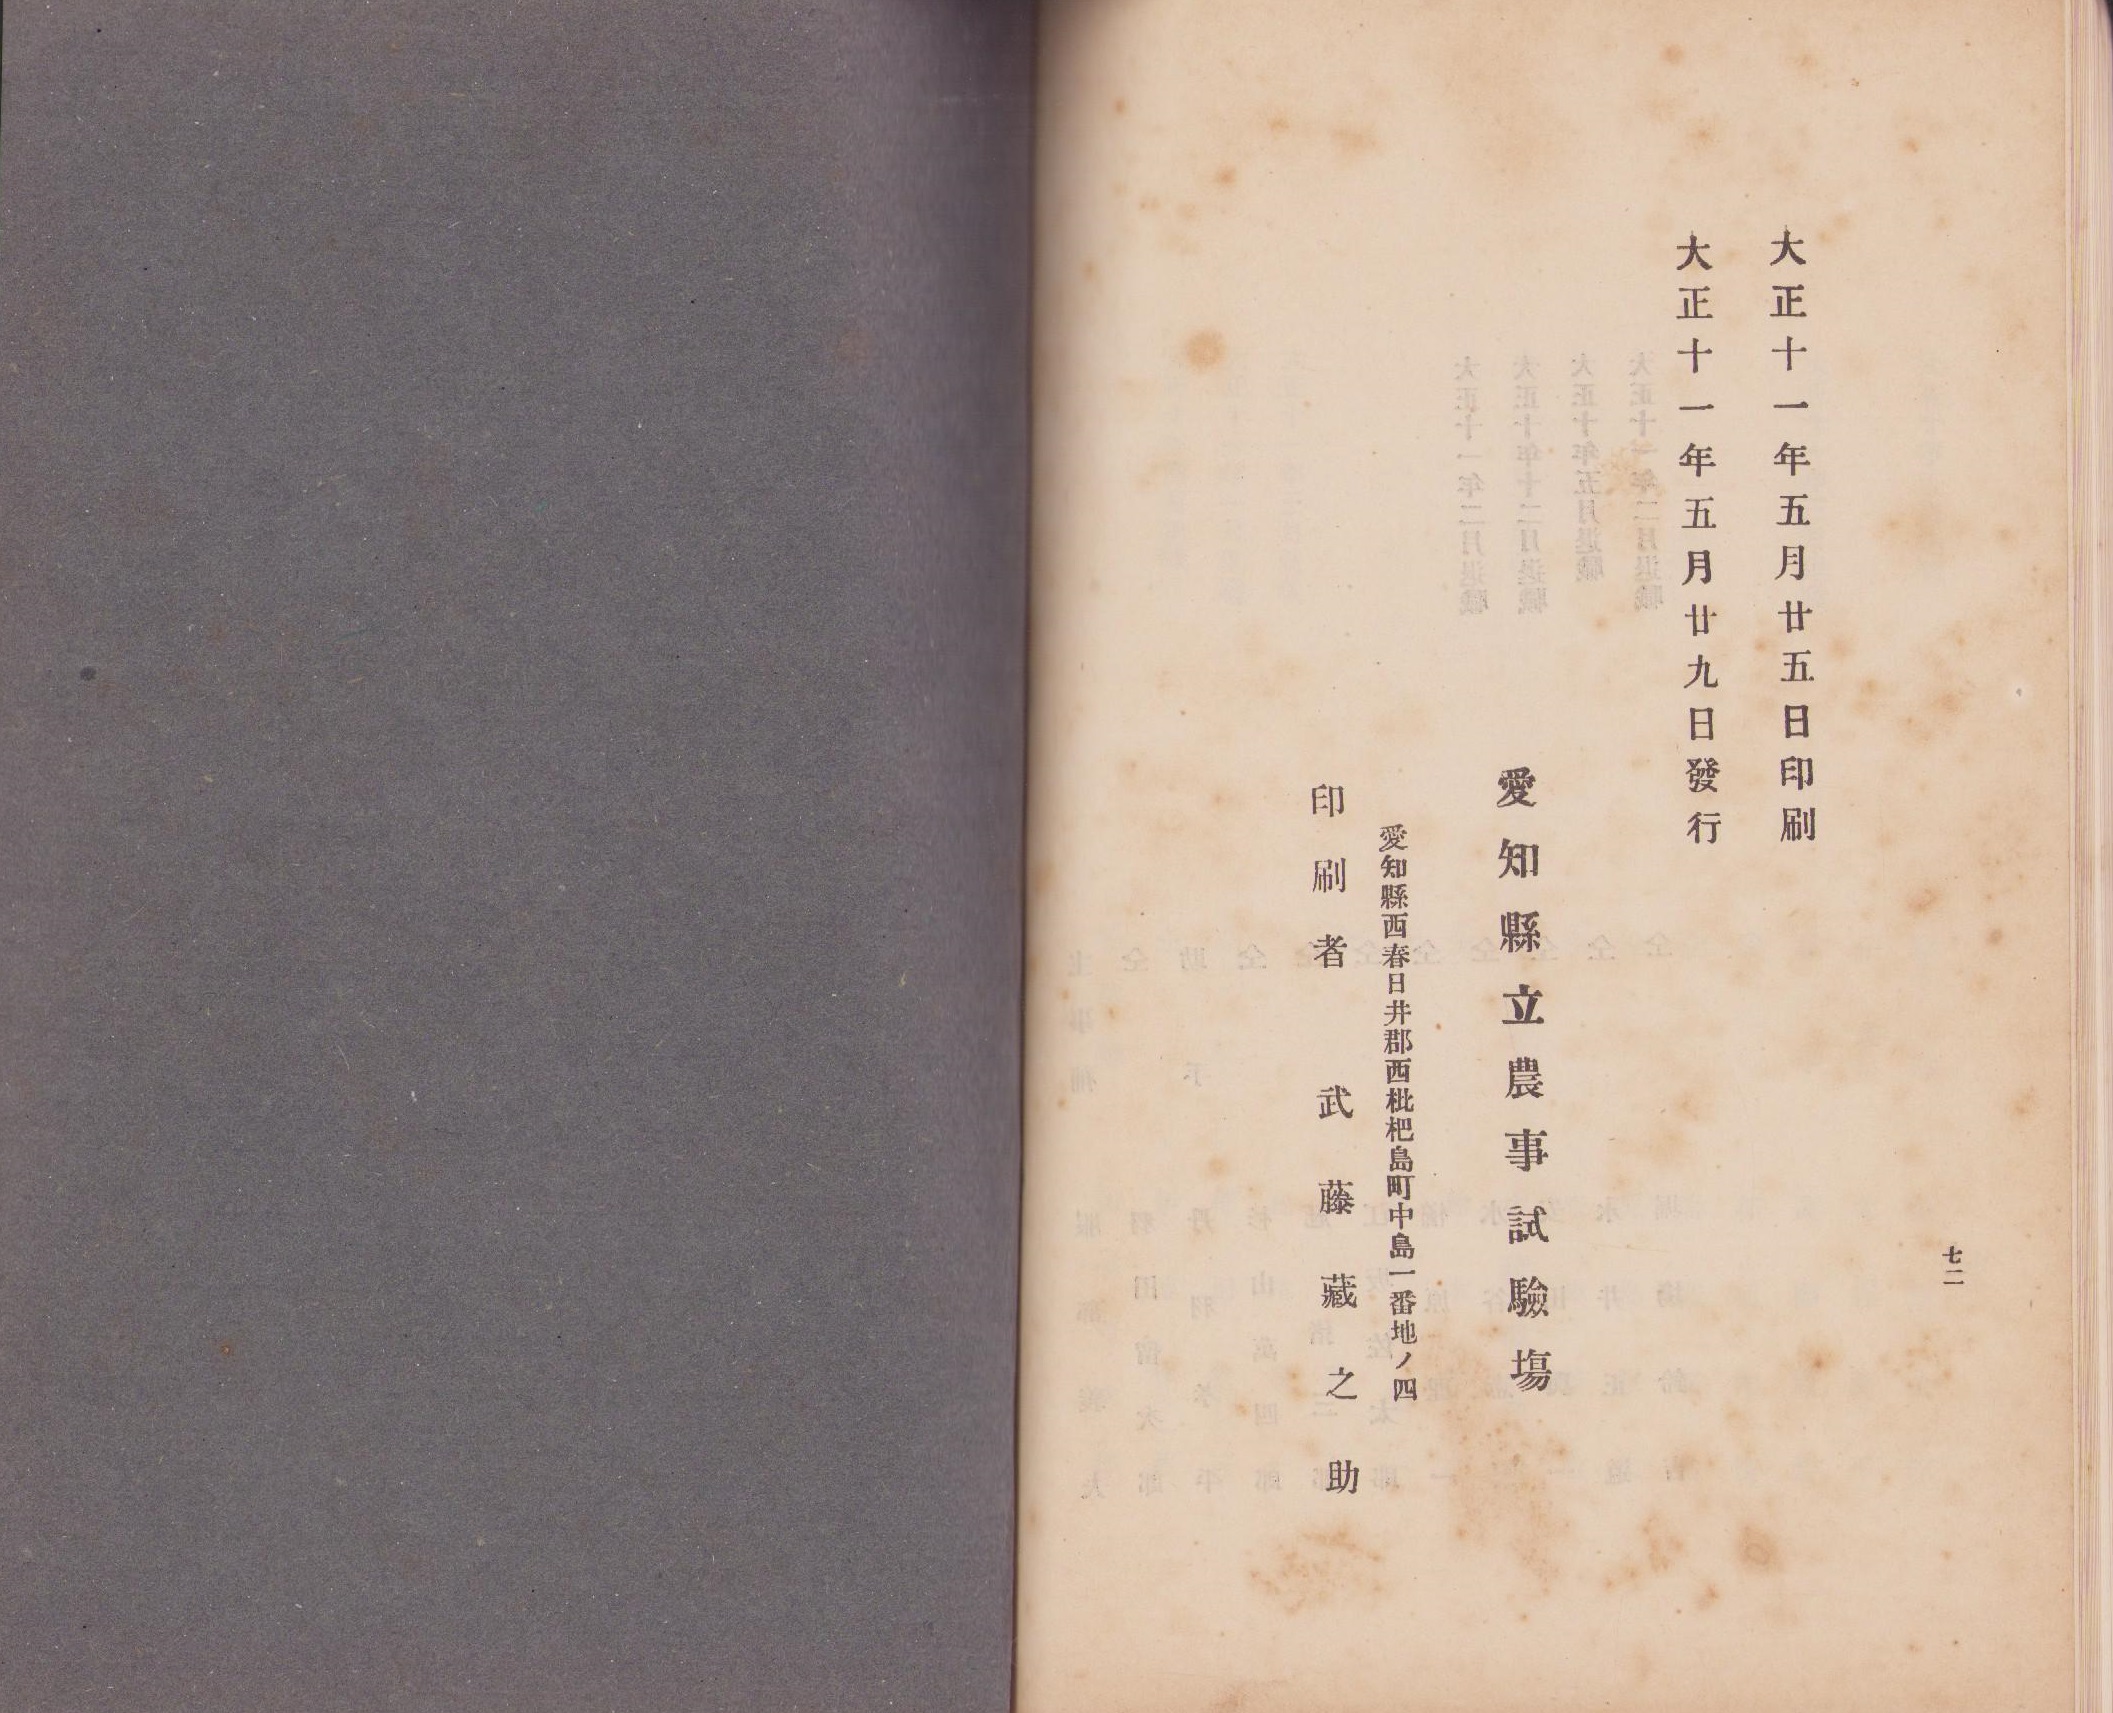 大正十一年五月廿五日印刷
大正十一年五月廿九日發行
愛知縣立農事試驗塲
愛知縣西春日井郡西枇杷島町中島一番地ノ四
印刷者　武藤藏之助
七二